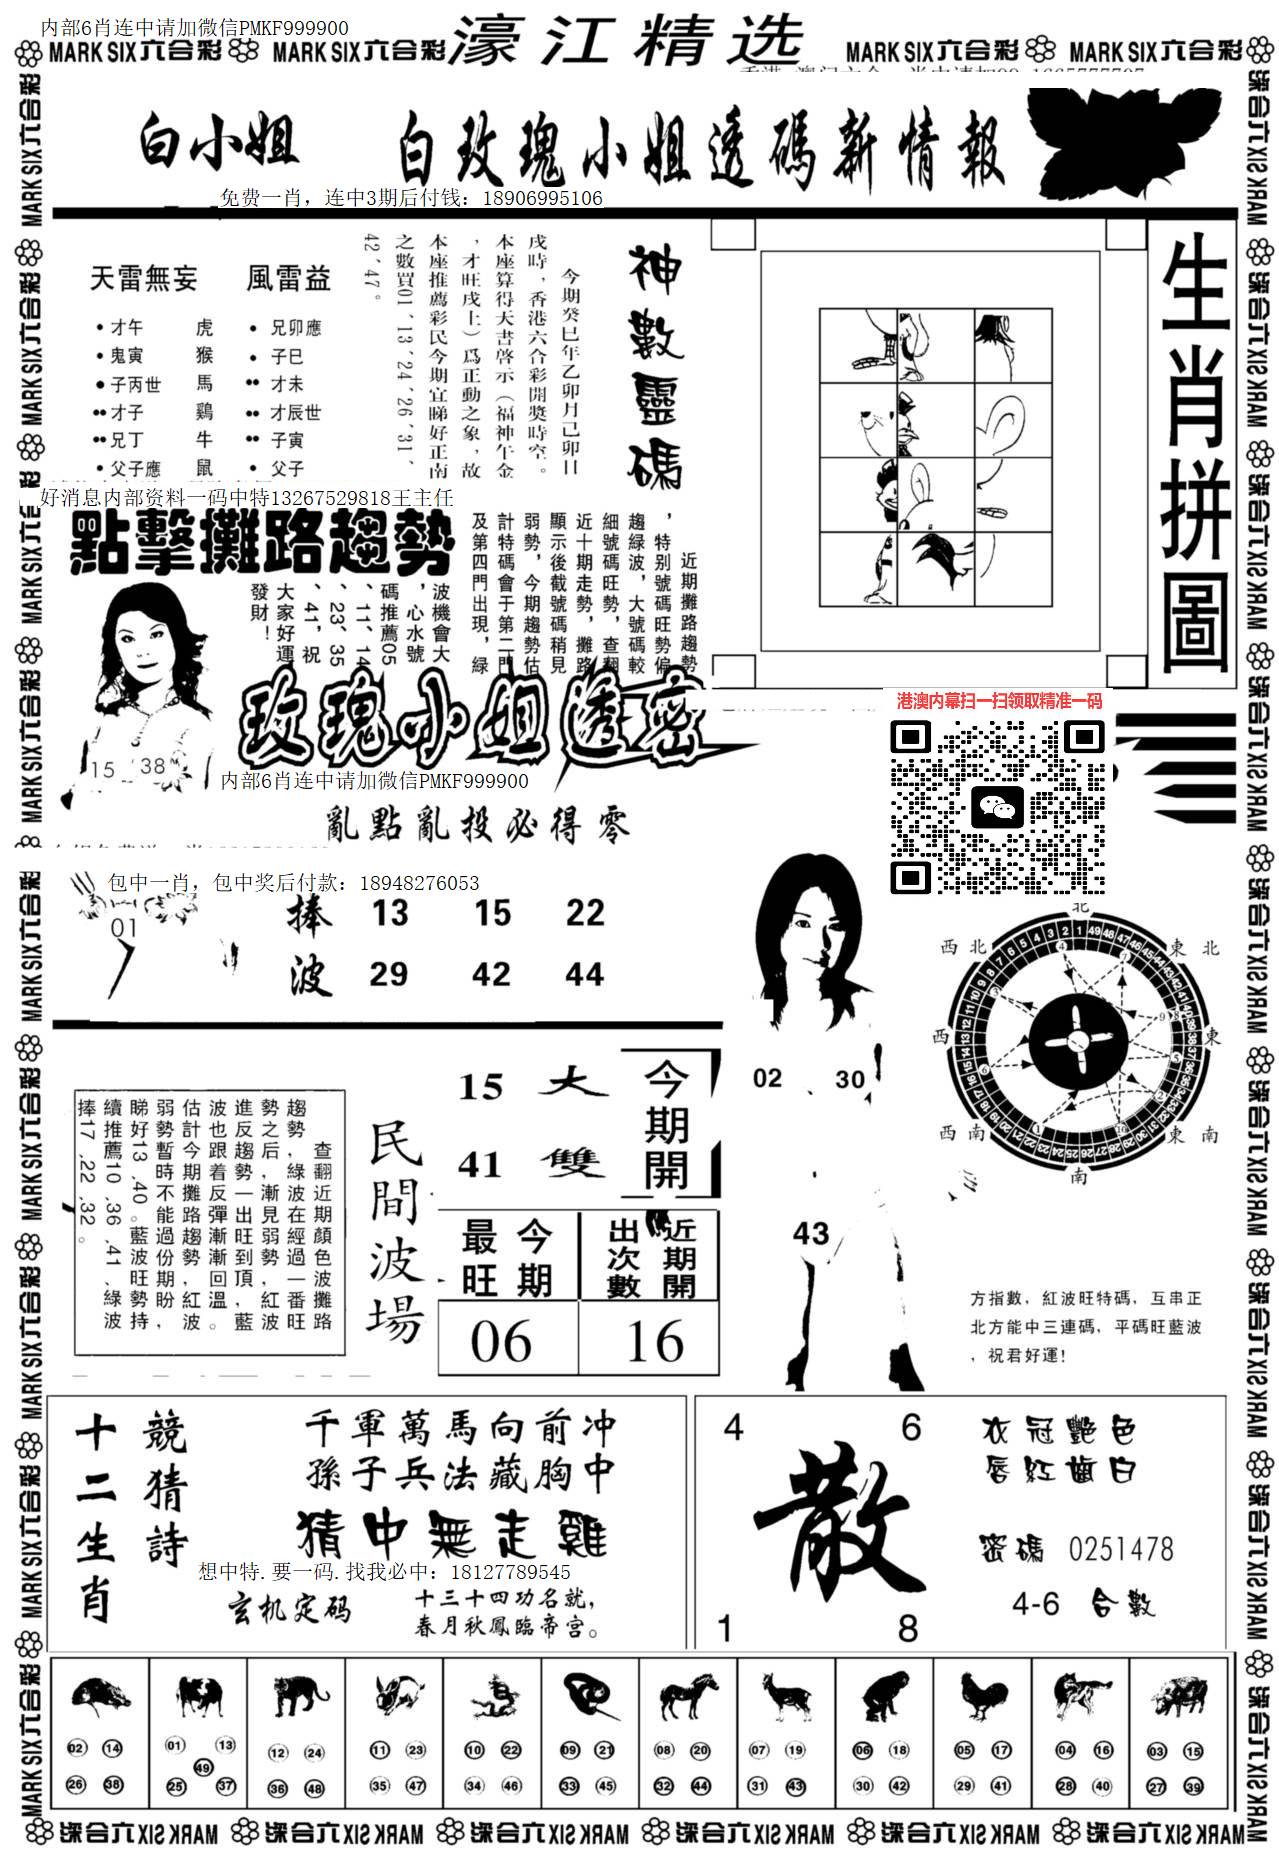 内部6肖连中请加微信PMKF999900
濠江精选
MARK SIX六合彩 MARK SIX六合彩 MARK SIX六合彩 MARK SIX六合彩
白小姐 白玫瑰小姐透碼新情報
免费一肖，连中3期后付钱：18906995106
天雷無妄 風雷益
才午 虎 兄卯應
鬼寅 猴 子巳
子丙世 馬 才未
才子 鷄 才辰世
兄丁 牛 子寅
父子應 鼠 父子
神數靈碼
今期癸巳年乙卯月己卯日
戌時，香港六合彩開獎時空。
本座算得天書啓示（福神午金
，才旺戌土）爲正動之象，故
本座推薦彩民今期宜睇好正南
之數買01、13、24、26、31、
42、47。
生肖拼圖
好消息内部资料一码中特13267529818王主任
點擊攤路趨勢
近期攤路趨勢
，特别號碼旺勢偏
趨緑波，大號碼較
細號碼旺勢，查翻
近十期走勢，攤路
顯示後截號碼稍見
弱勢，今期趨勢估
計特碼會于第二門
及第四門出現，緑
波機會大
，心水號
碼推薦05
、11、14
、23、35
、41，祝
大家好運
發財！
15 38
玫瑰小姐透密
内部6肖连中请加微信PMKF999900
亂點亂投必得零
港澳内幕扫一扫领取精准一码
包中一肖，包中奖后付款：18948276053
01
捧波
13 15 22
29 42 44
02 30
43
北
西北 東北
西 東
西南 東南
南
方指數，紅波旺特碼，互串正
北方能中三連碼，平碼旺藍波
，祝君好運！
民間波場
查翻近期顔色波攤路
趨勢，綠波在經過一番旺
勢之后，漸見弱勢，紅波
進反趨勢一出旺到頂，藍
波也跟着反彈漸漸回温。
估計今期攤路趨勢，紅波
弱勢暫時不能過份期盼，
睇好13、40。藍波旺勢持
續推薦10、36、41、綠波
捧17、22、32。
15 大
41 雙
今期開
今期最旺
近期開出次數
06 16
十二生肖
競猜詩
千軍萬馬向前冲
孫子兵法藏胸中
猜中無走雞
想中特.要一码.找我必中：18127789545
玄机定码
十三十四功名就，
春月秋鳳臨帝宫。
4 6
散
1 8
衣冠艷色
唇紅齒白
密碼 0251478
4-6 合數
02 14 01 13 12 24 11 23 10 22 09 21 08 20 07 19 06 18 05 17 04 16 03 15
49
26 38 25 37 36 48 35 47 34 46 33 45 32 44 31 43 30 42 29 41 28 40 27 39
MARK SIX六合彩 MARK SIX六合彩 MARK SIX六合彩 MARK SIX六合彩 MARK SIX六合彩 MARK SIX六合彩